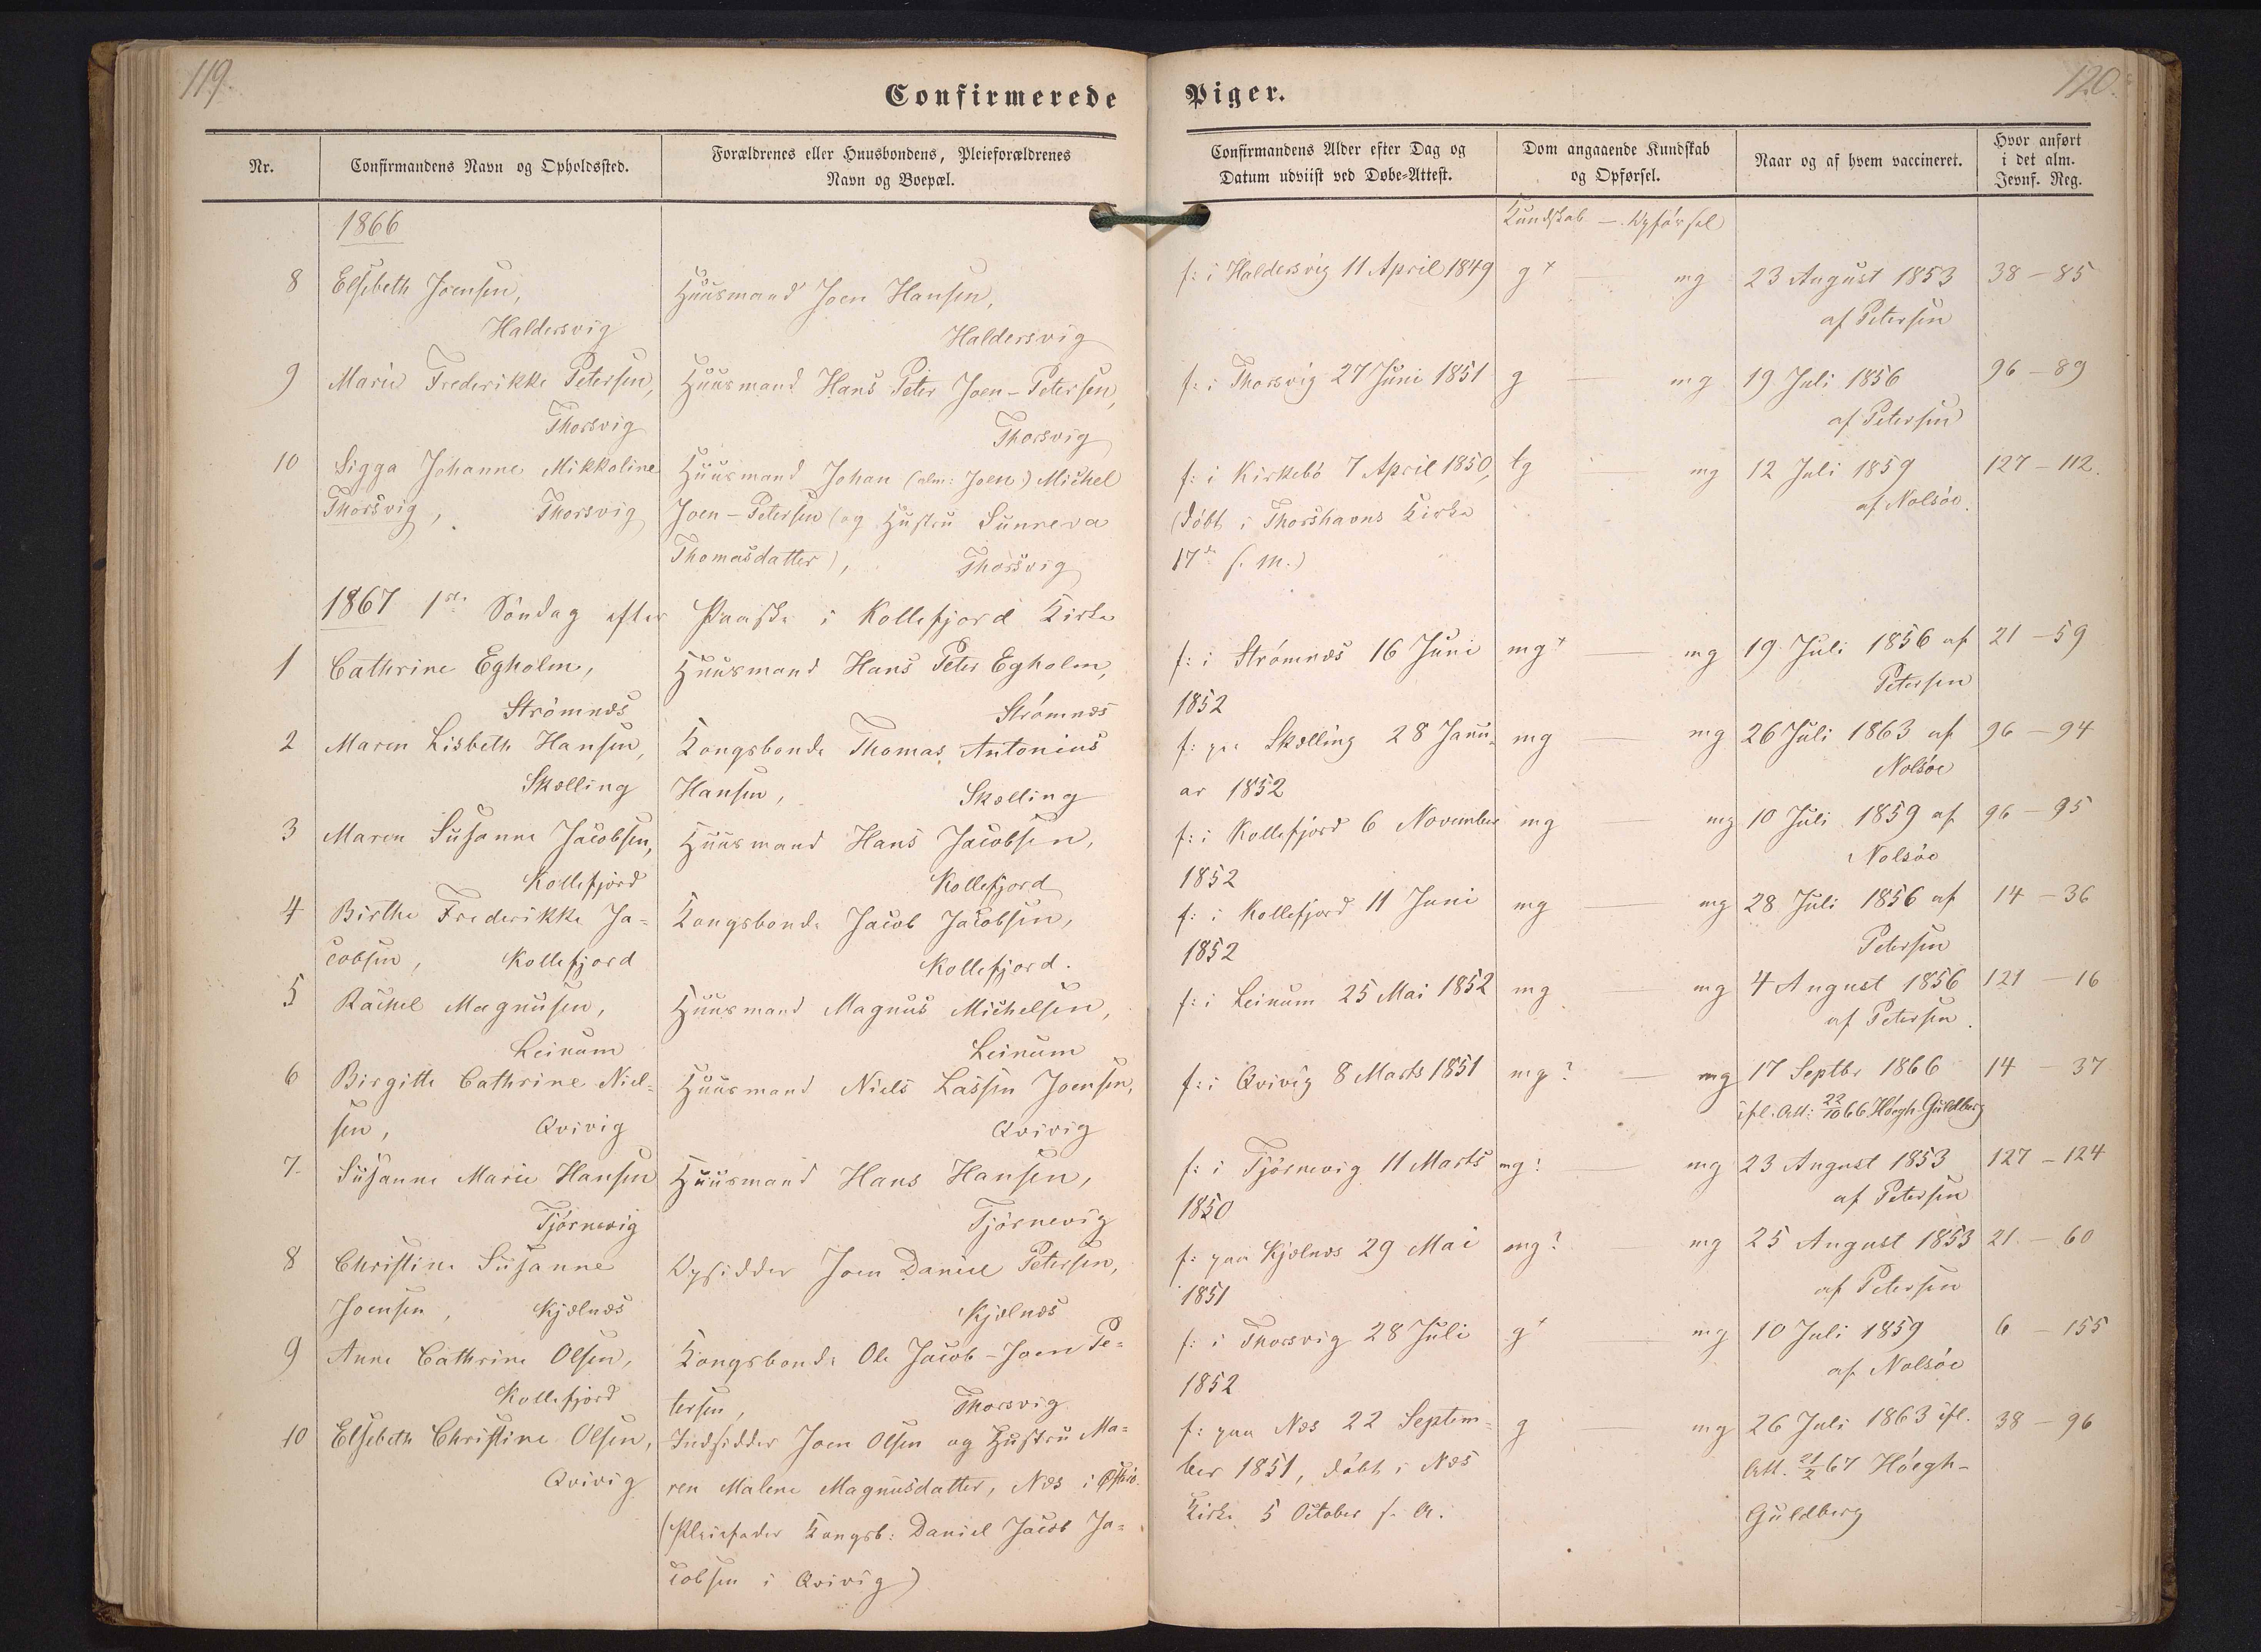 119.
120.
Confirmerede Piger.
Nr.
Confirmandens Navn og Opholdssted.
Forældrenes eller Huusbondens, Pleieforældrenes
Navn og Boepæl.
Confirmandens Alder efter Dag og
Datum udviist ved Døbe=Attest.
Dom angaaende Kundskab
og Opførsel.
Naar og af hvem vaccineret.
Hvor anført
i det alm.
Jevnf. Reg.
1866
Kundskab — Opførsel
8 Elsebeth Joensen, Huusmand Joen Hansen, f: i Haldersvig 11 April 1849 g+ — mg 23 August 1853 38 - 85
Haldersvig Haldersvig af Petersen
9 Marie Frederikke Petersen, Huusmand Hans Peter Joen-Petersen, f: i Thorsvig 27 Juni 1851 g — mg 19 Juli 1856 96 - 89
Thorsvig Thorsvig af Petersen
10 Sigga Johanne Mikkoline Huusmand Johan (alm: Joen) Michel f: i Kirkebö 7 April 1850, tg — mg 12 Juli 1859 127 - 112.
Thorsvig, Thorsvig Joen-Petersen (og Hustru Sunneva (döbt i Thorshavns Kirke af Nolsöe.
Thomasdatter), Thorsvig 17de s. M.)
1867 1ste Söndag efter Paaske i Kollefjord Kirke
1 Cathrine Egholm, Huusmand Hans Peter Egholm, f: i Strömnæs 16 Juni mg+ — mg 19 Juli 1856 af 21 - 59
Strömnæs Strömnæs 1852 Petersen
2 Maren Lisbeth Hansen, Kongsbonde Thomas Antonius f: paa Skælling 28 Janu- mg — mg 26 Juli 1863 af 96 - 94
Skælling Hansen, Skælling ar 1852 Nolsöe
3 Maren Susanne Jacobsen, Huusmand Hans Jacobsen, f: i Kollefjord 6 November mg — mg 10 Juli 1859 af 96 - 95
Kollefjord Kollefjord 1852 Nolsöe
4 Birthe Frederikke Ja= Kongsbonde Jacob Jacobsen, f: i Kollefjord 11 Juni mg — mg 28 Juli 1856 af 14 - 36
cobsen, Kollefjord Kollefjord. 1852 Petersen
5 Rachel Magnusen, Huusmand Magnus Michelsen, f: i Leinum 25 Mai 1852 mg — mg 4 August 1856 121 - 16
Leinum Leinum af Petersen.
6 Birgitte Cathrine Niel= Huusmand Niels Lassen Joensen, f: i Qvivig 8 Marts 1851 mg? — mg 17 Septbr 1866 14 - 37
sen, Qvivig Qvivig ifl. Att: 22/10 66 Höegh Guldberg
7. Susanne Marie Hansen Huusmand Hans Hansen, f: i Tjörnevig 11 Marts mg? — mg 23 August 1853 127 - 124
Tjörnevig Tjörnevig 1850 af Petersen
8 Christine Susanne Opsidder Joen Daniel Petersen, f: paa Kjælnæs 29 Mai mg? — mg 25 August 1853 21 - 60
Joensen, Kjælnæs Kjælnæs 1851 af Petersen
9 Anne Cathrine Olsen, Kongsbonde Ole Jacob-Joen Pe= f: i Thorsvig 28 Juli g+ — mg 10 Juli 1859 6 - 155
Kollefjord tersen, Thorsvig 1852 af Nolsöe
10 Elsebeth Christine Olsen, Indsidder Joen Olsen og Hustru Ma= f: paa Næs 22 Septem= g — mg 26 Juli 1863 ifl. 38 - 96
Qvivig ren Malene Magnusdatter, Næs i ber 1851, döbt i Næs Att. 21/2 67 Höegh-
(Pleiefader Kongsb: Daniel Jacob Ja= Kirke 5 October s. A. Guldberg
cobsen i Qvivig)